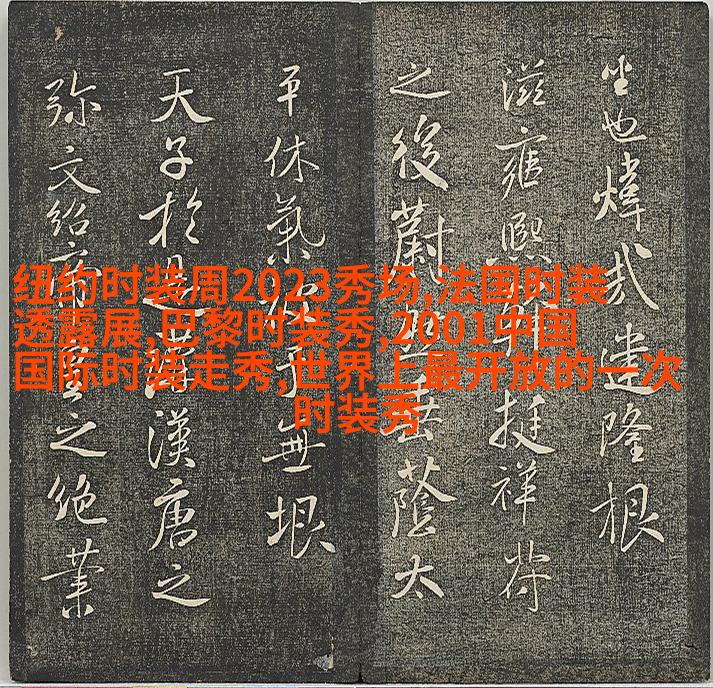 纽约时装周2023秀场,法国时装
透露展,巴黎时装秀,2001中国
国际时装走秀,世界上最开放的一次
时装秀
也煒哉建隆根
滋雍熙挺祥符
之後蔚垂蔭太
平休氣乎無垠
天子於是講漢唐之
弥文紹之絶業